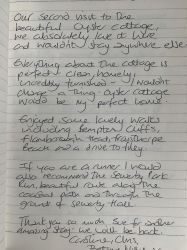 Our second visit to the
beautiful Oyster cottage,
we absolutely love it here
and wouldn't stay anywhere else
Everything about the cottage is
perfect, clean, homely,
incredibly furnished - I wouldn't
change a thing. Oyster cottage
would be my perfect home.
Enjoyed some lovely walks
including Bempton Cliffs,
Flamborough Head, Fraisthorpe
Beach and a drive to
If you are a runner I would
also recommend the Sewerby Park
Run, beautiful route along the
coastal path and through the
grounds of Sewerby Hall.
Thank you so much for another
amazing stay, we will be back.
Caroline, Chris,